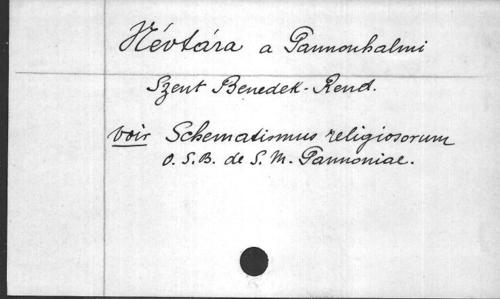 Névtára a Pannonhalmi
Szent Benedek-Rend.
voir Schematismus religiosorum
O. S. B. de S. M. Pannoniae.